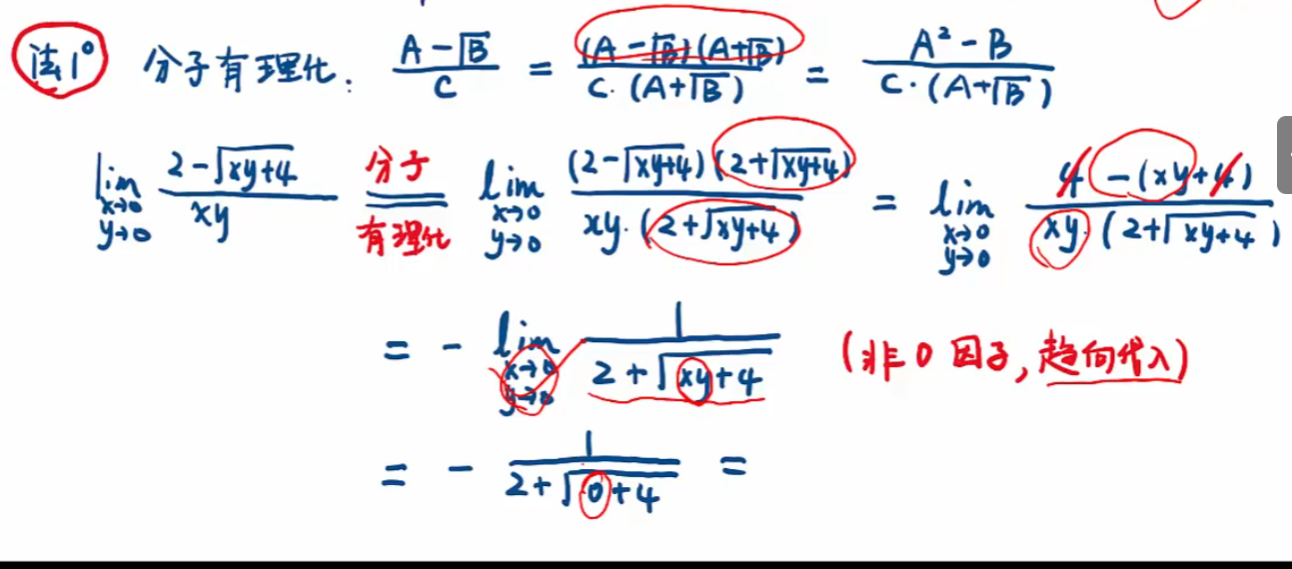 法1° 分子有理化: (A-√B)/C = (A-√B)(A+√B)/(C·(A+√B)) = (A²-B)/(C·(A+√B))
lim x→0 y→0 (2-√(xy+4))/(xy) 分子有理化 == lim x→0 y→0 (2-√(xy+4))(2+√(xy+4))/(xy·(2+√(xy+4))) = lim x→0 y→0 (4-(xy+4))/(xy·(2+√(xy+4)))
= - lim x→0 y→0 1/(2+√(xy+4)) (非0因子,趋向代入)
= - 1/(2+√(0+4)) =